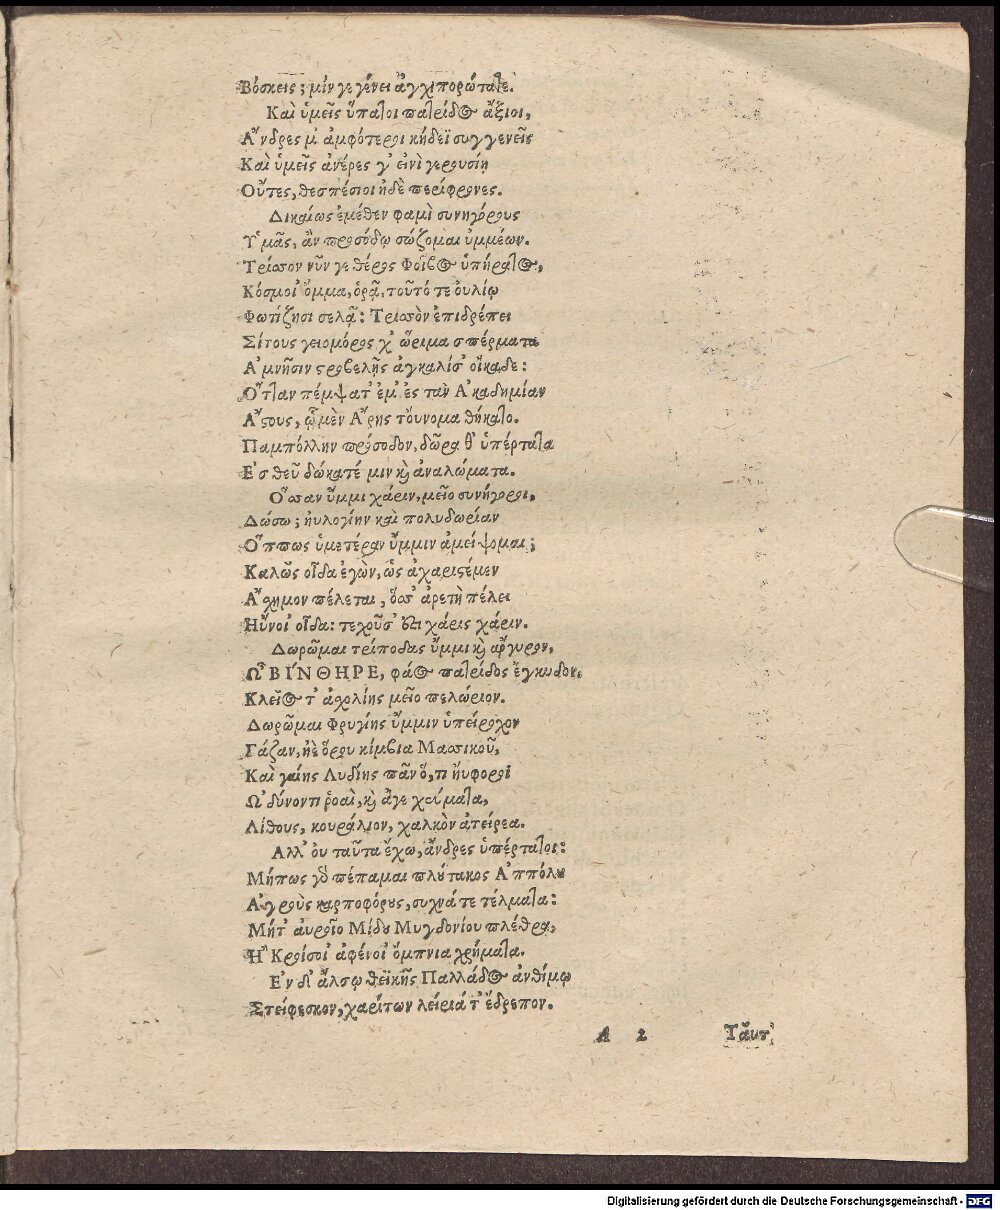 Βόσκεις; μίν γε γένει ἀγχιπορώτατε.
Καὶ ὑμεῖς ὕπατοι πατρίδος ἄξιοι,
Ἄνδρες μ' ἀμφότεροι κήδεϊ συγγενεῖς
Καὶ ὑμεῖς ἀνέρες γ' εἰνὶ γερουσίῃ
Οὗτες, θεσπέσιοι ἠδὲ περίφρονες.
Δικαίως ἐμέθεν φαμὶ συνηγόρους
Ὑμᾶς, ἂν προσόδῳ σώζομαι ὑμμέων.
Τρίστον νῦν γε θέρος Φοῖβος ὑπήρατος,
Κόσμοι' ὄμμα, ὁρᾷ, τοῦτό τε οὐλίῳ
Φωτίζησι σελᾷ: Τριστὸν ἐπιδρέπει
Σίτους γειομόρος χ' ὥριμα σπέρματα
Ἀμνῆσιν στροβελῆς ἀγκαλίσ' οἴκαδε:
Ὅτταν πέμψατ' ἐμ' ἐς τὰν Ἀκαδημίαν
Ἄστους, ᾧ μὲν Ἄρης τοὔνομα θήκατο.
Παμπόλλην πρόσοδον, δῶρα θ' ὑπέρτατα
Ἐσθεῦ δώκατέ μιν καὶ ἀναλώματα.
Ὅσσαν ὔμμι χάριν, μεῖο συνήγοροι,
Δώσω; ηὐλογίην καὶ πολυδωρίαν
Ὅππως ὑμετέραν ὔμμιν ἀμείψομαι;
Καλῶς οἶδα ἐγὼν, ὡς ἀχαριστέμεν
Ἄσχημον πέλεται, ὅσσ' ἀρετὴ πέλει
Ηὖνοι' οἶδα: τεκοῦσ' ἐστι χάρις χάριν.
Δωρῶμαι τρίποδας ὔμμι καὶ ἄργυρον,
Ὦ ΒΙΝΘΗΡΕ, φάος πατρίδος ἔγκυδον,
Κλεῖος τ' ἀσχολίης μεῖο πελώριον.
Δωρῶμαι Φρυγίης ὔμμιν ὑπείροχον
Γάζαν, ἠὲ ὄρου κίμβια Μασσικοῦ,
Καὶ γαίης Λυδίης πᾶν ὅ, τι ηὔφοροι
Ὠδύνοντι ῥοαὶ, καὶ ἄγε χεύματα,
Λίθους, κουράλιον, χαλκὸν ἀτείρεα.
Ἀλλ' οὐ ταῦτα ἔχω, ἄνδρες ὑπέρτατοι:
Μήπως γὰρ πέπαμαι πλύτακος Ἀππόλου
Ἀγροὺς καρποφόρους, συχνά τε τέλματα:
Μήτ' αὐροῖο Μίδου Μυγδονίου πλέθρα,
Ἢ Κροίσοι' ἀφένοι' ὄμπνια χρήματα.
Ἐν δ' ἄλσῳ θεϊκῆς Παλλάδος ἀνθίμῳ
Στείφεσκον, χαρίτων λείριά τ' ἔδρεπον.
A 2 Ταὔτ'
Digitalisierung gefördert durch die Deutsche Forschungsgemeinschaft - DFG